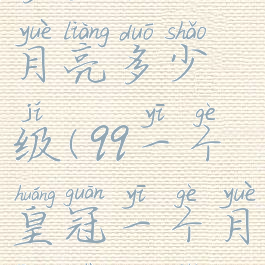 yuè liàng duō shǎo
月亮多少
jí yī gè
级(99一个
huáng guān yī gè yuè
皇冠一个月